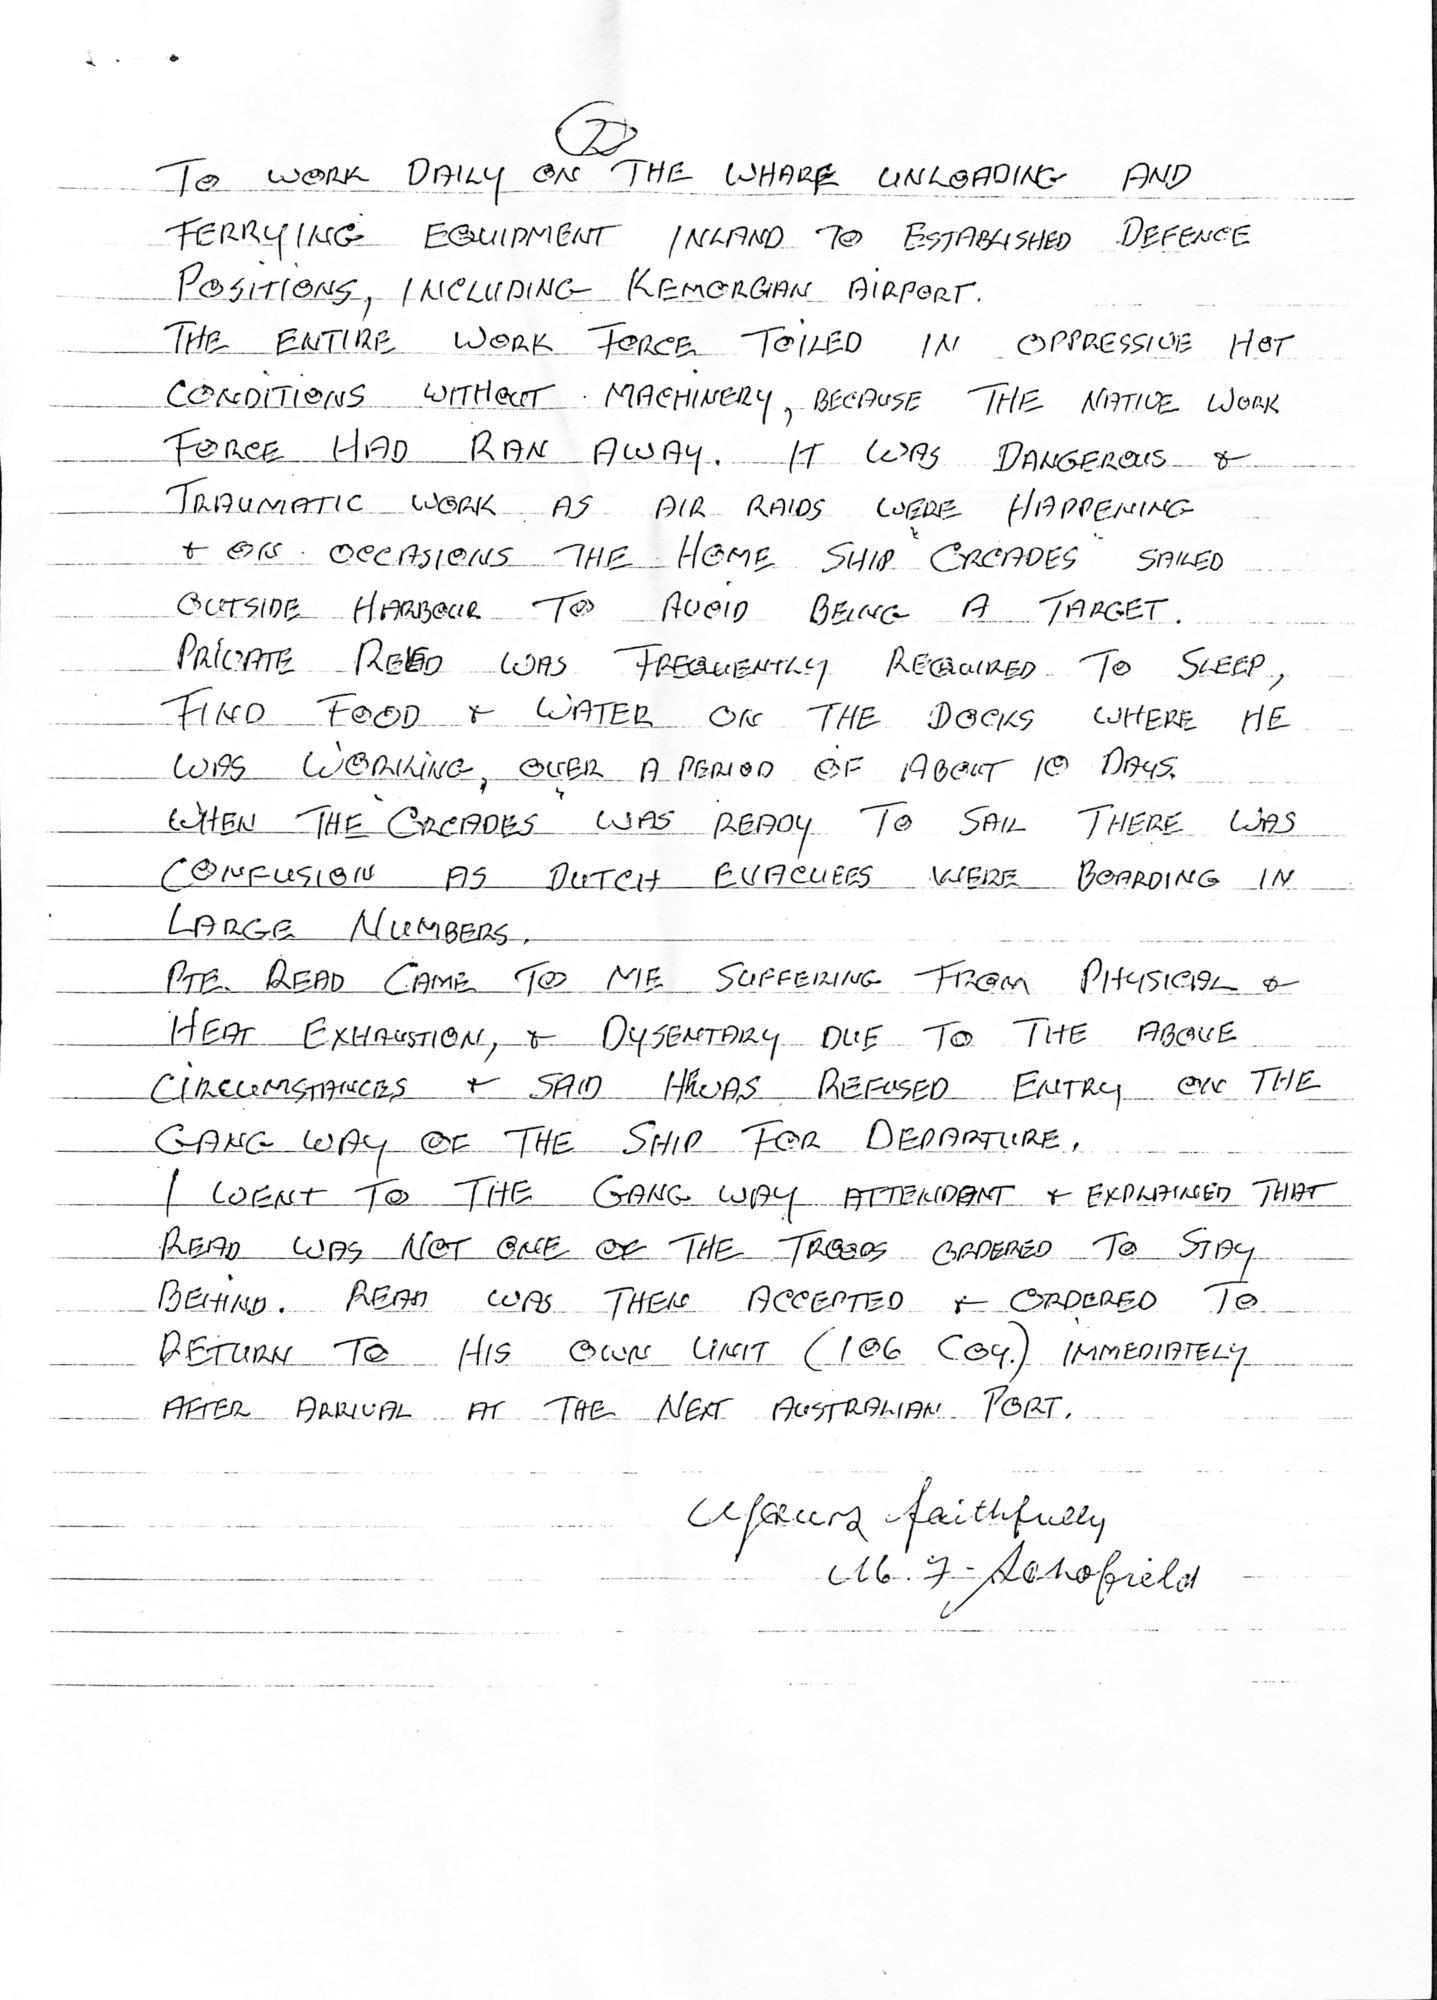 2
TO WORK DAILY ON THE WHARF UNLOADING AND
FERRYING EQUIPMENT INLAND TO ESTABLISHED DEFENCE
POSITIONS, INCLUDING KEMORGIAN AIRPORT.
THE ENTIRE WORK FORCE TOILED IN OPPRESSIVE HOT
CONDITIONS WITHOUT MACHINERY, BECAUSE THE NATIVE WORK
FORCE HAD RAN AWAY. IT WAS DANGEROUS &
TRAUMATIC WORK AS AIR RAIDS WERE HAPPENING
& ON OCCASIONS THE HOME SHIP "ORCADES" SAILED
OUTSIDE HARBOUR TO AVOID BEING A TARGET.
PRIVATE READ WAS FREQUENTLY REQUIRED TO SLEEP,
FIND FOOD & WATER ON THE DOCKS WHERE HE
WAS WORKING, OVER A PERIOD OF ABOUT 10 DAYS.
WHEN THE "ORCADES" WAS READY TO SAIL THERE WAS
CONFUSION AS DUTCH EVACUEES WERE BOARDING IN
LARGE NUMBERS.
PTE. READ CAME TO ME SUFFERING FROM PHYSICAL &
HEAT EXHAUSTION, & DYSENTARY DUE TO THE ABOVE
CIRCUMSTANCES & SAID HE WAS REFUSED ENTRY ON THE
GANG WAY OF THE SHIP FOR DEPARTURE.
I WENT TO THE GANG WAY ATTENDANT & EXPLAINED THAT
READ WAS NOT ONE OF THE TROOPS ORDERED TO STAY
BEHIND. READ WAS THEN ACCEPTED & ORDERED TO
RETURN TO HIS OWN UNIT (106 COY.) IMMEDIATELY
AFTER ARRIVAL AT THE NEXT AUSTRALIAN PORT.
Yours faithfully
M. F. Schofield